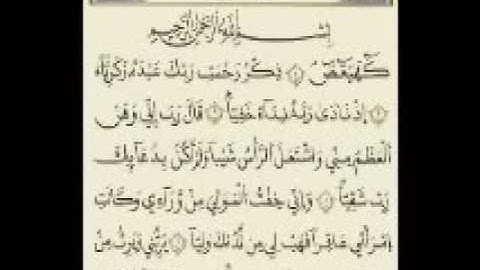 بِسْمِ اللَّهِ الرَّحْمَٰنِ الرَّحِيمِ
كهيعص ۝ ذِكْرُ رَحْمَتِ رَبِّكَ عَبْدَهُ زَكَرِيَّا
۝ إِذْ نَادَىٰ رَبَّهُ نِدَاءً خَفِيًّا ۝ قَالَ رَبِّ إِنِّي وَهَنَ
الْعَظْمُ مِنِّي وَاشْتَعَلَ الرَّأْسُ شَيْبًا وَلَمْ أَكُنْ بِدُعَائِكَ
رَبِّ شَقِيًّا ۝ وَإِنِّي خِفْتُ الْمَوَالِيَ مِنْ وَرَاءِي وَكَانَتِ
امْرَأَتِي عَاقِرًا فَهَبْ لِي مِنْ لَدُنْكَ وَلِيًّا ۝ يَرِثُنِي وَيَرِثُ مِنْ